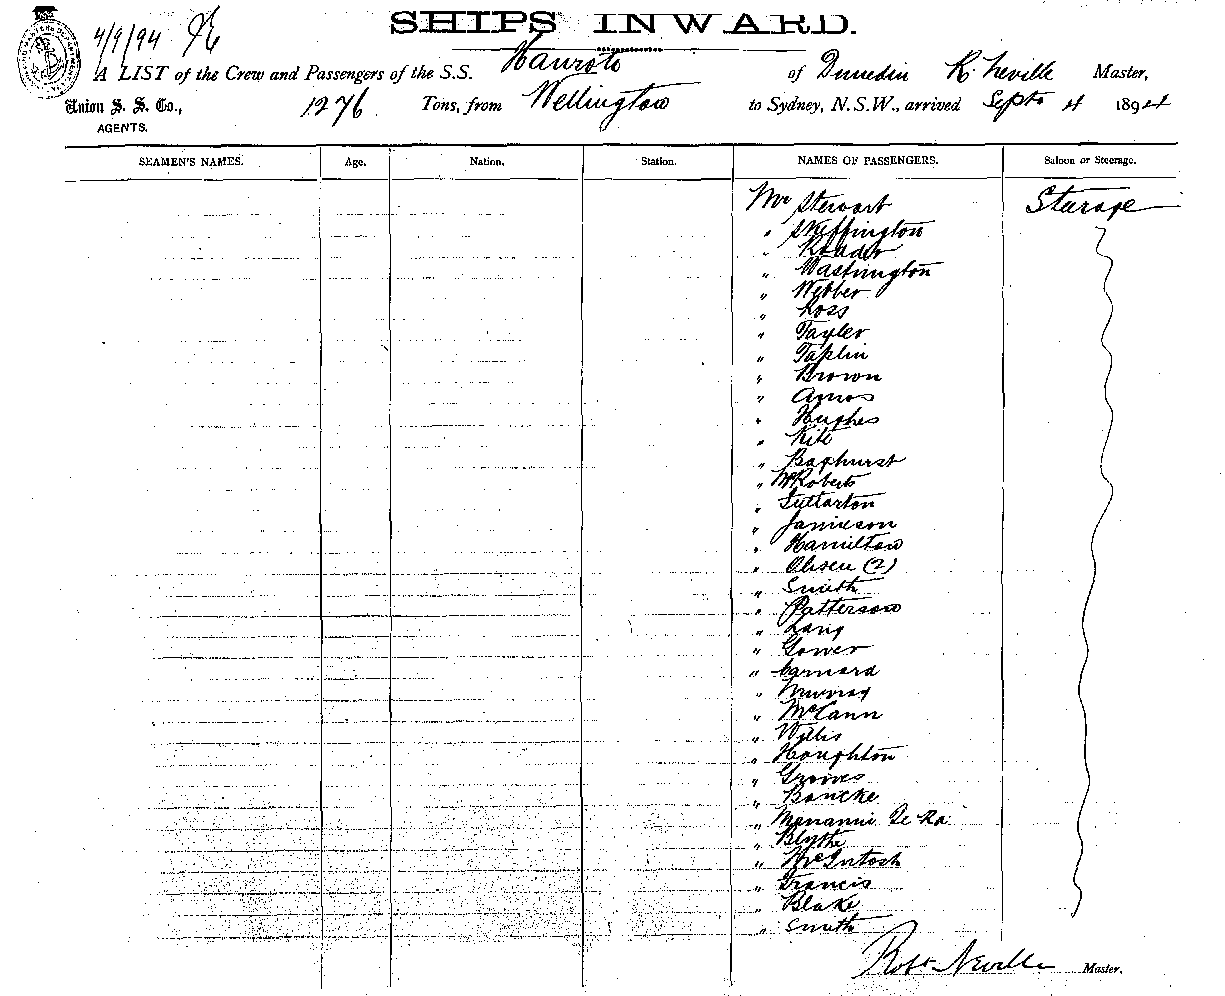 SHIPS INWARD.
4/9/94
A LIST of the Crew and Passengers of the S.S. Hauroto of Dunedin R. Neville Master,
Union S. S. Co., 1276 Tons, from Wellington to Sydney, N.S.W., arrived Septr 4 1894
AGENTS.
SEAMEN'S NAMES. Age. Nation. Station. NAMES OF PASSENGERS. Saloon or Steerage.
Mr Stewart Steerage
" Skeffington
" Reader
" Washington
" Webber
" Ross
" Tayler
" Taplin
" Brown
" Amos
" Hughes
" Kile
" Baghurst
" McRoberts
" Fullarton
" Jamieson
" Hamilton
" Olsen (2)
" Smith
" Patterson
" Lang
" Gower
" Carnard
" Murray
" McCann
" Willis
" Houghton
" Groves
" Bancke
" Manannie Te Ra
" Blythe
" McIntosh
" Francis
" Blake
" Smith
Robt Neville Master.